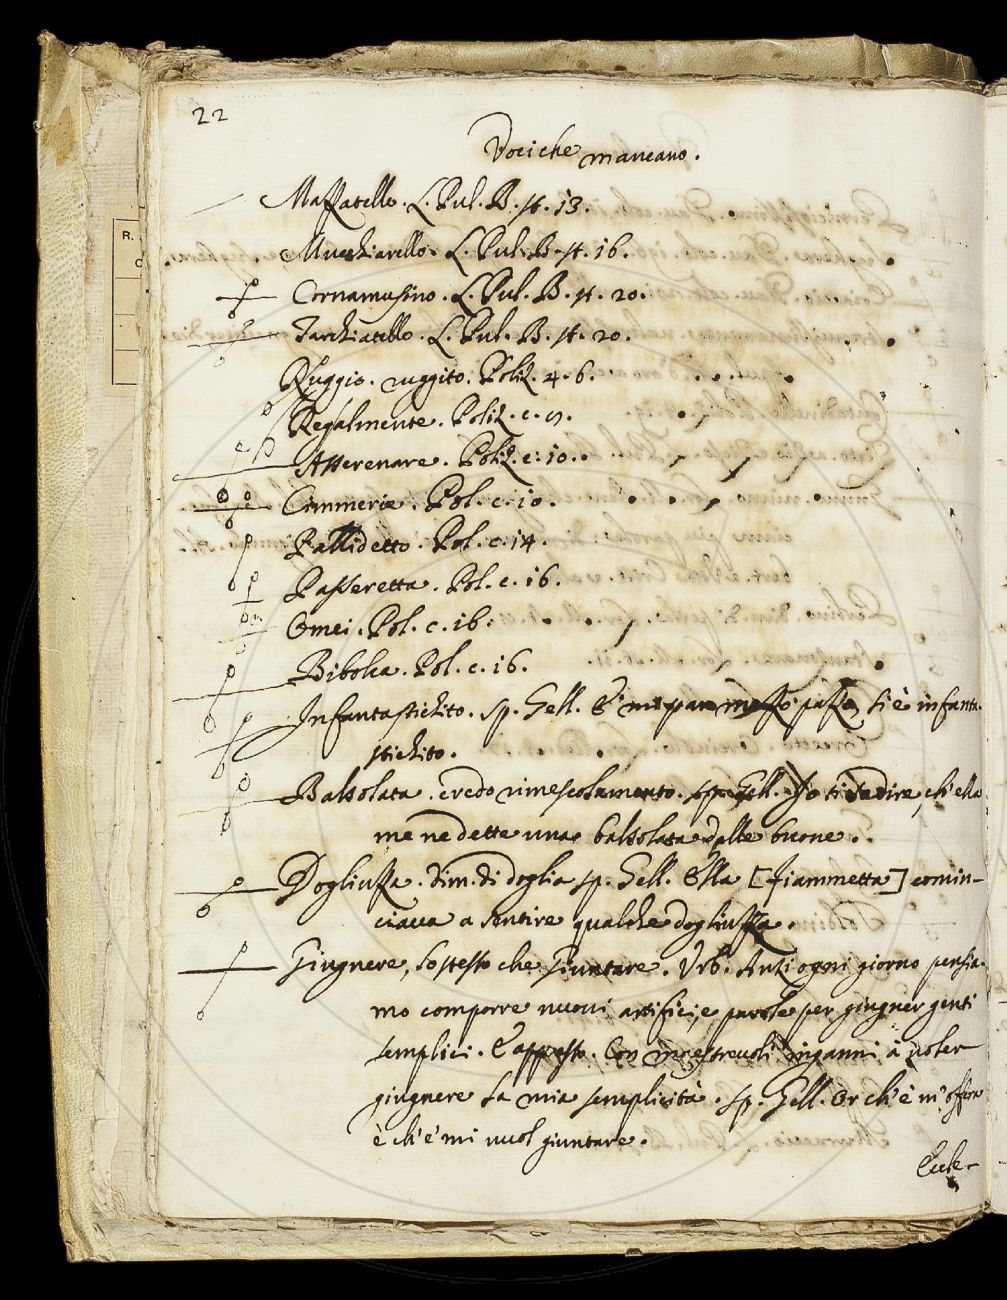 22
Voci che mancano.
Mazzatello. L. Pul. B. st. 13.
Mucchiarello. L. Pul. B. st. 16.
Cornamusino. L. Pul. B. st. 20.
Tarchiatello. L. Pul. B. st. 20.
Ruggio. ruggito. Poliz. 4. 6.
Regalmente. Poliz. c. 9.
Atterenare. Poliz. c. 10.
Cimmerie. Pol. c. 10.
Pallidetto. Pol. c. 14.
Passeretta. Pol. c. 16.
Omei. Pol. c. 16.
Bibolca. Pol. c. 16.
Infantastichito. sp. Gell. E' mi par mezzo pazzo, si è infanta-
stichito.
Balsolata. credo rimescolamento. sp. Gell. Io ti so dire, ch'ella
me ne dette una balsolata delle buone.
Dogliuzza. dim. di doglia sp. Gell. Ella [Fiammetta] comin-
ciava a sentire qualche dogliuzza.
Giugnere, lo stesso che Giuntare. Urb. Anzi ogni giorno pensia-
mo comporre nuovi artifici, e parole per giugner genti
semplici. E appresso. Con maestrevoli inganni à voler
giugnere la mia semplicità. sp. Gell. Or ch'è m'
è ch'e' mi vuol giuntare.